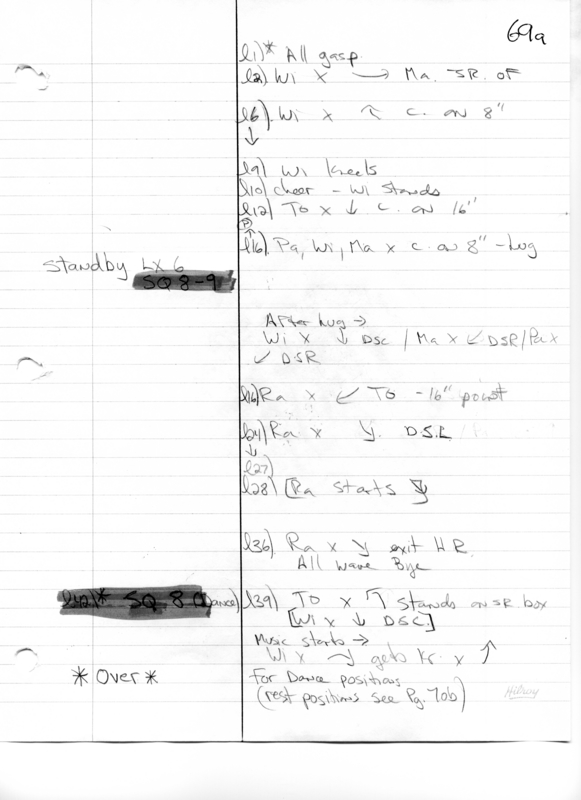 69a
l1)* All gasp
l2) Wi x → Ma. SR. of
l6). Wi x ↑ c. on 8"
↓
l9) Wi kneels
l10) cheer - Wi stands
l12) To x ↓ c. on 16"
P
↑
l16). Pa, Wi, Ma x c. on 8" - hug
Standby LX 6
SQ 8-9
After hug →
Wi x ↓ DSC / Ma x ↙ DSR / Pa x
↙ DSR
l16) Ra x ↙ To - 16" point
l24) Ra x DSL
↓
l27)
l28) [Ra starts ]
l36) Ra x exit HR.
All wave Bye
l42)* SQ 8 (Dance) l39) To x stands on SR box
[Wi x ↓ DSC.]
Music starts →
Wi x gets Kr. x ↑
*Over* For Dance positions
(rest positions see Pg. 70b)
Hilroy